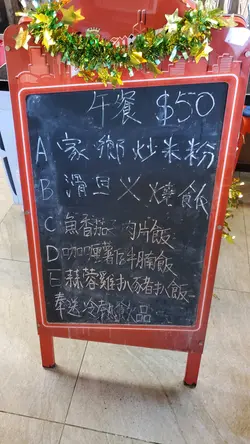 午餐 $50
A 家鄉炒米粉
B 滑旦乂燒飯
C 魚香茄子肉片飯
D 咖喱薯仔牛腩飯
E 蒜蓉雞扒豬扒飯
奉送冷熱飲品